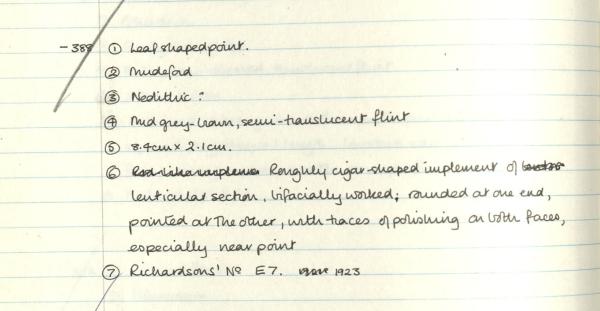 -388 ① Leaf shaped point.
② Mudeford
③ Neolithic?
④ Mid grey-brown, semi-translucent flint
⑤ 8.4cm x 2.1cm.
⑥ Roughly cigar-shaped implement of
lenticular section, bifacially worked; rounded at one end,
pointed at the other, with traces of polishing on both faces,
especially near point
⑦ Richardsons' No E7. 1923